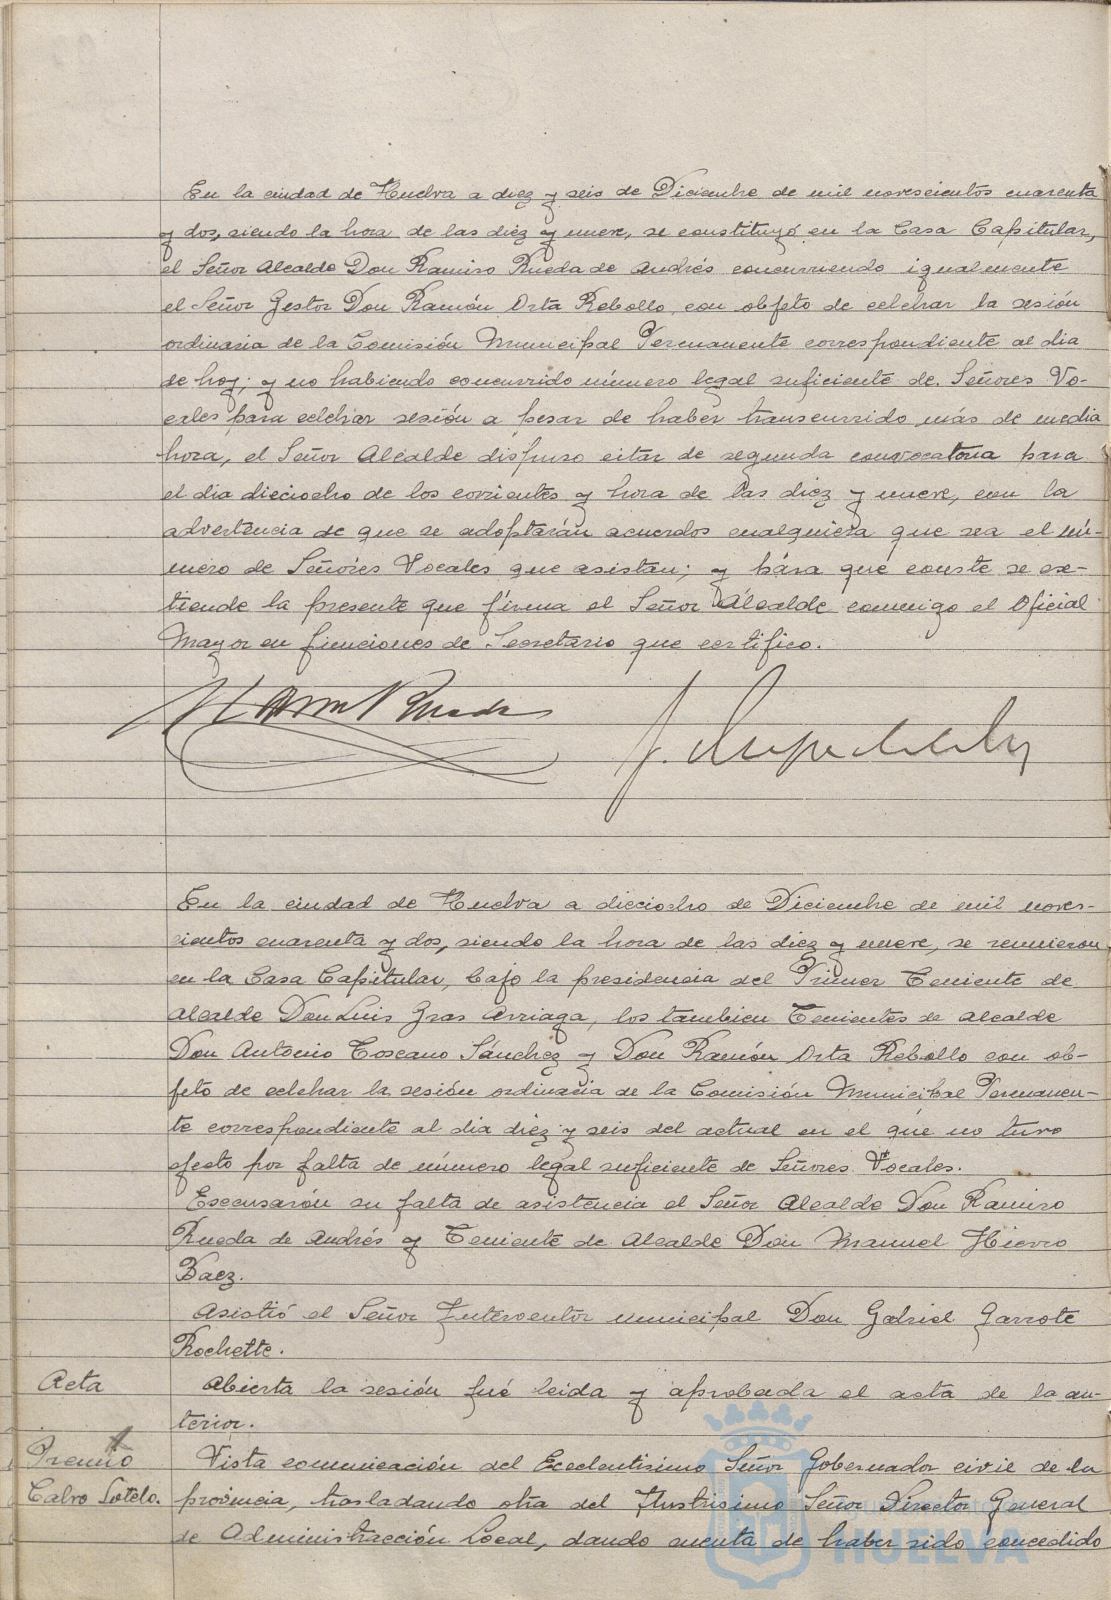 En la ciudad de Huelva a diez y seis de Diciembre de mil novescientos cuarenta
y dos, siendo la hora de las diez y nueve, se constituyó en la Casa Capitular,
el Señor Alcalde Don Ramiro Rueda de Andrés concurriendo igualmente
el Señor Gestor Don Ramón Orta Rebollo, con objeto de celebrar la sesión
ordinaria de la Comisión Municipal Permanente correspondiente al dia
de hoy; y no habiendo concurrido número legal suficiente de Señores Vo-
cales para celebrar sesión a pesar de haber transcurrido más de media
hora, el Señor Alcalde dispuso citar de segunda convocatoria para
el dia dieciocho de los corrientes y hora de las diez y nueve, con la
advertencia de que se adoptarán acuerdos cualquiera que sea el nú-
mero de Señores Vocales que asistan; y para que conste se ex-
tiende la presente que firma el Señor Alcalde conmigo el Oficial
Mayor en funciones de Secretario que certifico.
En la ciudad de Huelva a dieciocho de Diciembre de mil noves-
cientos cuarenta y dos, siendo la hora de las diez y nueve, se reunieron
en la Casa Capitular, bajo la presidencia del Primer Teniente de
Alcalde Don Luis Gras Arriaga, los tambien Tenientes de Alcalde
Don Antonio Toscano Sánchez y Don Ramón Orta Rebollo con ob-
jeto de celebrar la sesión ordinaria de la Comisión Municipal Permanen-
te correspondiente al dia diez y seis del actual en el que no tuvo
efecto por falta de número legal suficiente de Señores Vocales.
Escusarón su falta de asistencia el Señor Alcalde Don Ramiro
Rueda de Andrés y Teniente de Alcalde Don Manuel Hierro
Baez.
Asistió el Señor Interventor municipal Don Gabriel Garrote
Rochette.
Acta
Abierta la sesión fué leida y aprobada el acta de la an-
terior.
Premio
Calvo Sotelo.
Vista comunicación del Excelentisimo Señor Gobernador civil de la
provincia, trasladando otra del Ilustrisimo Señor Director General
de Administracción Local, dando cuenta de haber sido concedido
Ayuntamiento de
HUELVA